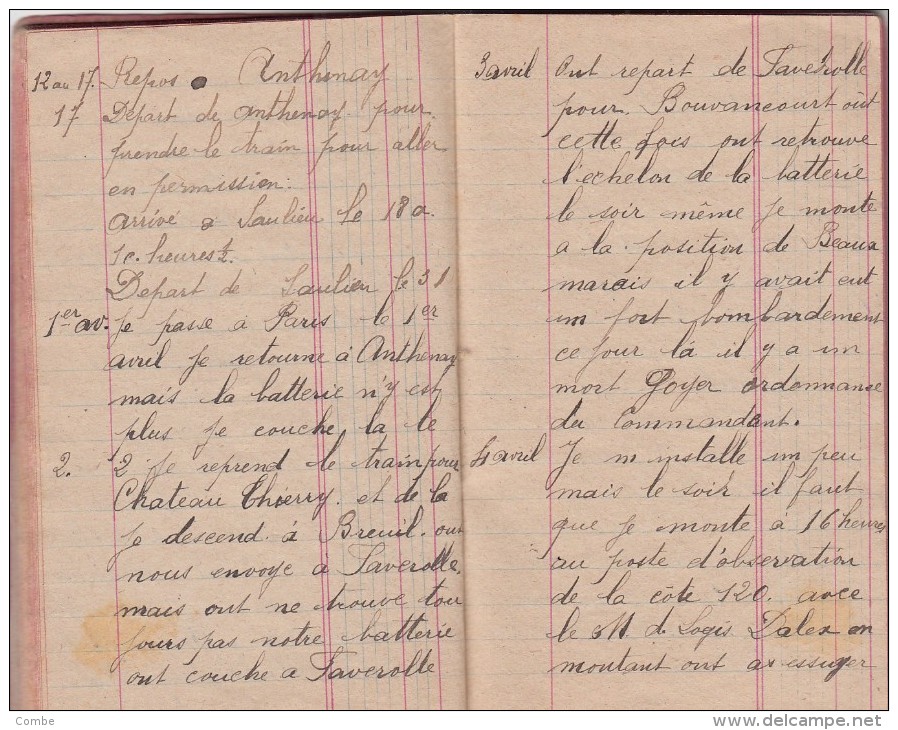 12 au 17. Repos Anthenay
17 Depart de anthenay pour
prendre le train pour aller
en permission.
arrivé a Saulieu le 18 a
10 heures ½.
Depart de Saulieu le 31
1er av. Je passe à Paris le 1er
avril je retourne à Anthenay
mais la batterie n'y est
plus je couche la le
2. 2 je reprend le train pour
Chateau Thierry et de la
je descend à Breuil. ont
nous envoye à Saverolle.
mais ont ne trouve tou
jours pas notre batterie
ont couche a Saverolle
3 avril Ont repart de Saverolle
pour Bouvancourt out
cette fois ont retrouve
l'echelon de la batterie
le soir même je monte
a la position de Beaux
marais il y avait eut
un fort bombardement
ce jour là il y a un
mort Goyer ordonnance
du Commandant.
4 avril Je m installe un peu
mais le soir il faut
que je monte à 16 heures
au poste d'observation
de la côte 120. avec
le M. d Logis Dalex en
montant ont a essuyer
Combe
www.delcampe.net